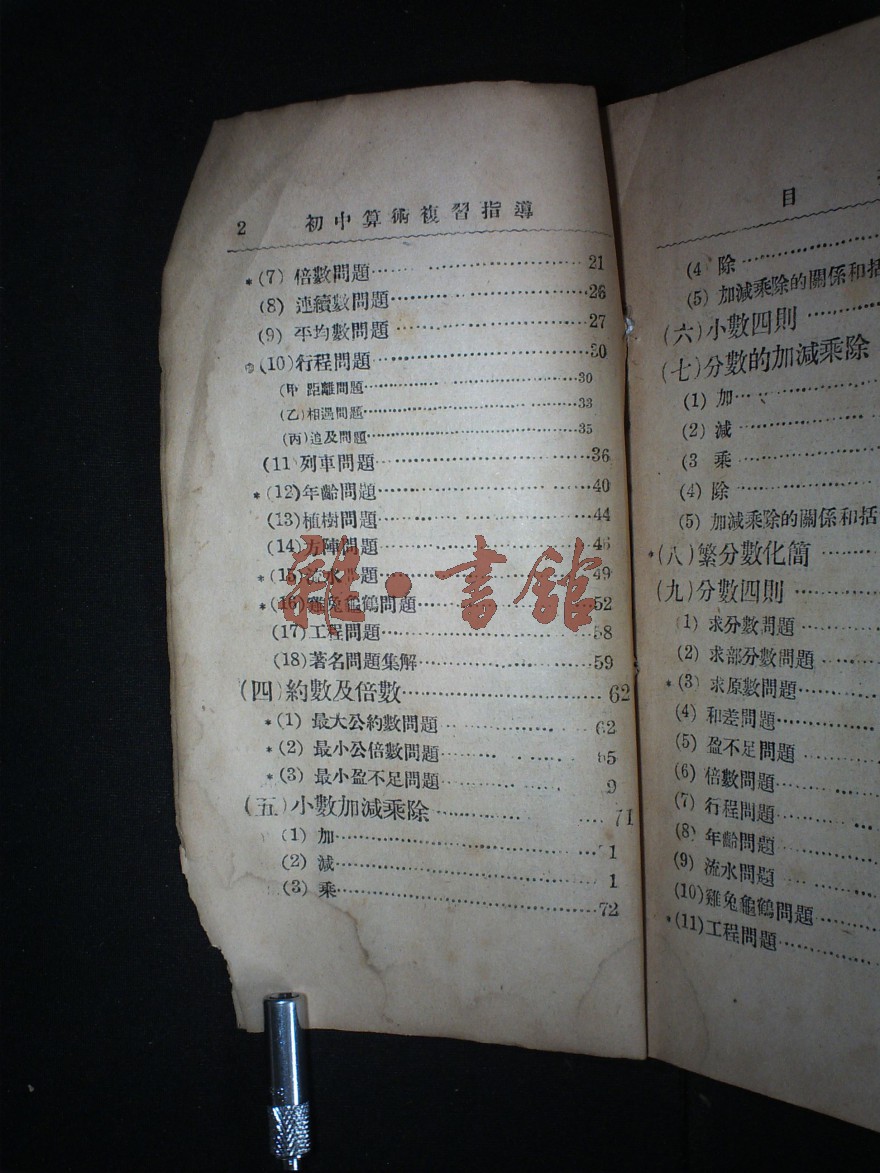 2 初中算術複習指導
*(7) 倍數問題 21
(8) 連續數問題 26
(9) 平均數問題 27
(10)行程問題 30
(甲 距離問題 30
(乙)相遇問題 33
(丙)追及問題 35
(11)列車問題 36
*(12)年齡問題 40
(13)植樹問題 44
(14)方陣問題
*(15)流水 題 49
*(16)雞兔龜鶴問題 52
(17)工程問題 58
(18)著名問題集解 59
(四)約數及倍數 62
*(1) 最大公約數問題 62
*(2) 最小公倍數問題 65
*(3) 最小盈不足問題 9
(五)小數加減乘除 71
(1) 加 71
(2) 減 1
(3) 乘 72
雜·書館
目
(4 除
(5) 加減乘除的關係和括
(六)小數四則
(七)分數的加減乘除
(1) 加
(2) 減
(3 乘
(4) 除
(5) 加減乘除的關係和括
*(八)繁分數化簡
(九)分數四則
1) 求分數問題
(2) 求部分數問題
*(3) 求原數問題
(4) 和差問題
(5) 盈不足問題
(6) 倍數問題
(7) 行程問題
(8) 年齡問題
(9) 流水問題
(10)雞兔龜鶴問題
*(11)工程問題